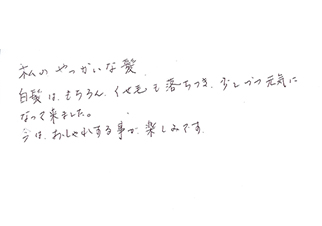 私の やっかいな髪
白髪は、もちろん、くせ毛も落ちつき、少しづつ元気に
なって来ました。
今は、おしゃれする事が、楽しみです。